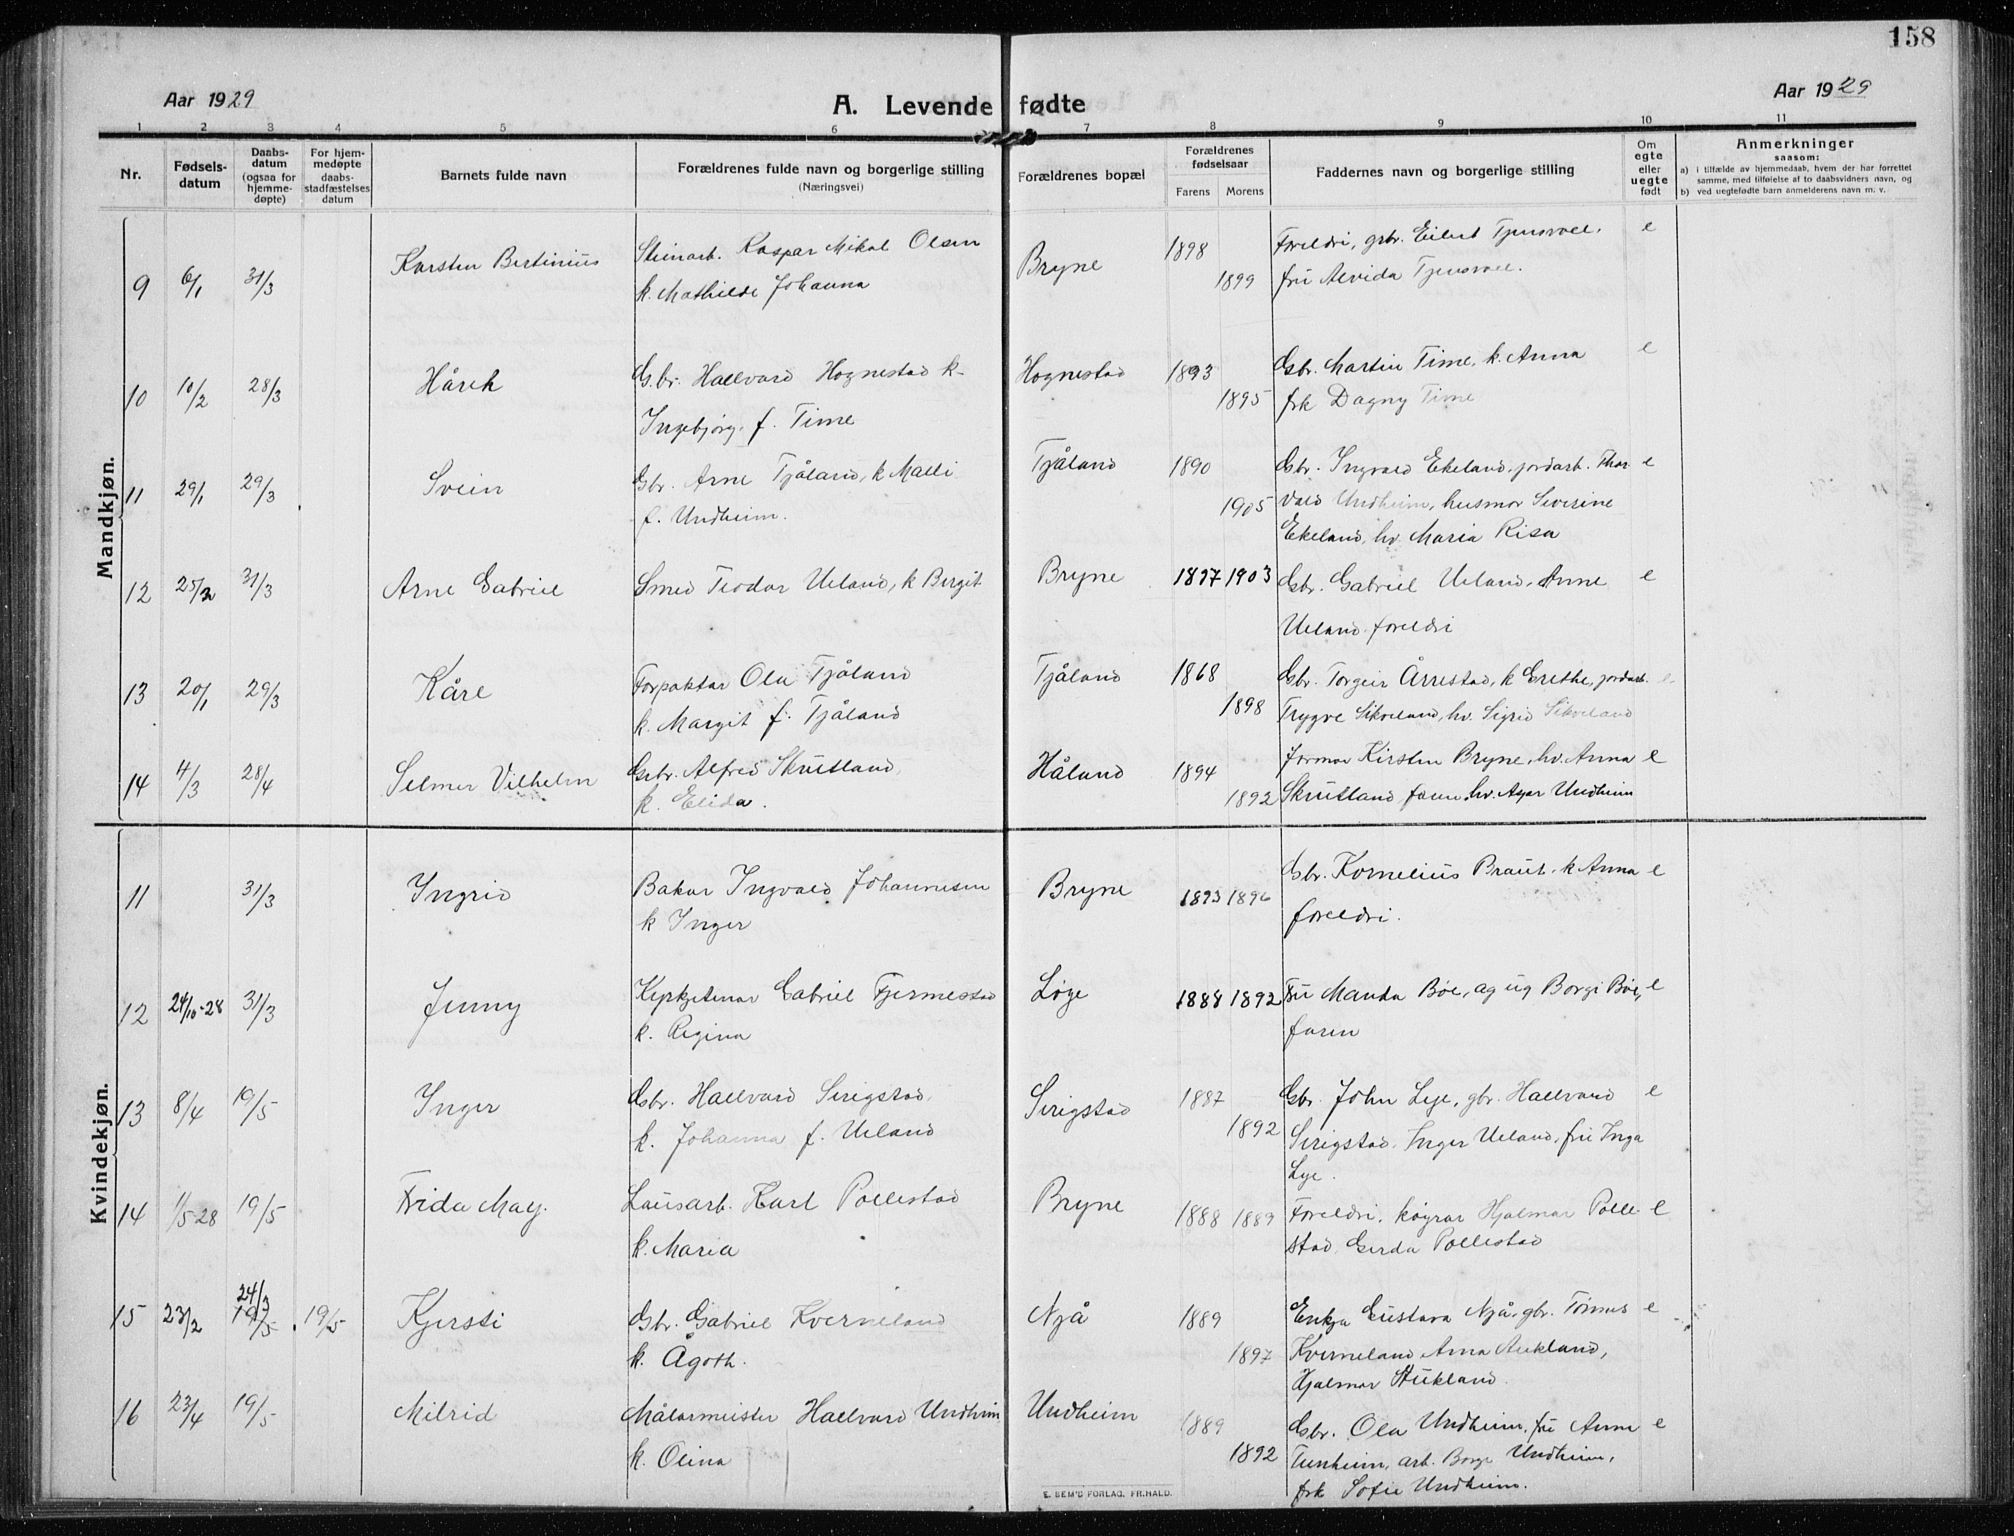 158
Aar 1929
A. Levende fødte
Aar 1929
1 2 3 4 5 6 7 8 9 10 11
Nr.
Fødselsdatum
Daabsdatum (ogsaa for hjemmedøpte)
For hjemmedøpte daabsstadfæstelses datum
Barnets fulde navn
Forældrenes fulde navn og borgerlige stilling
(Næringsvei)
Forældrenes bopæl
Forældrenes fødselsaar
Farens Morens
Faddernes navn og borgerlige stilling
Om egte eller uegte født
Anmerkninger
saasom:
a) i tilfælde av hjemmedaab, hvem der har forrettet samme, med tilføielse af to daabsvidners navn, og
b) ved uegtefødte barn anmelderens navn m. v.
Mandkjøn.
9 6/1 31/3 Karsten Bertinius Steinarb. Kaspar Mikal Olsen Bryne 1898 Foreldri, gsbr. Eilert Tjensvoll. e
k. Mathilde Johanna 1899 fru Alvida Tjensvoll.
10 10/2 28/3 Hårek G.br. Hallvard Hognestad k. Hognestad 1893 Gbr. Martin Time, k. Anna e
Ingebjørg. f. Time 1895 frk Dagny Time
11 29/1 29/3 Svein Gbr. Arne Tjåland, k Malli Tjåland 1890 Gbr. Ingvald Ekeland, jordarb. Thor e
f. Undheim. 1905 vald Undheim, husmor Severine
Ekeland, hv. Maria Risa
12 25/2 31/3 Arne Gabriel Smed Teodor Ueland, k Bergit Bryne 1897 1903 Gbr. Gabriel Ueland, Anne e
Ueland. foreldri
13 20/1 29/3 Kåre Forpaktar Ola Tjåland Tjåland 1868 Gbr. Torgeir Årrestad, k Grethe, jordarb. e
k. Margit f. Tjåland 1898 Trygve Sikveland, hv. Sigrid Sikveland
14 4/3 28/4 Selmer Vilhelm Gbr. Alfred Skrutland, Håland 1894 formor Kirsten Bryne, hv. Anna e
k. Elida. 1892 Skrutland, faren, hv. Agar Undheim
Kvindekjøn.
11 31/3 Ingrid Bakar Ingvald Johannesen Bryne 1893 1896 Gbr. Kornelius Braut. k Anna e
k Inger foreldri.
12 24/10-28 31/3 Jenny Gabriel Fjermestad Løge 1888 1892 Fru Manda Bøe, ag ug Borgi Bøe, e
k. Regina faren
13 8/4 19/5 Inger Gbr. Hallvard Serigstad, Serigstad 1887 Gbr. John Lye, gbr. Hallvard e
k. Johanna f. Ueland 1892 Serigstad, Inger Ueland, fru Inga
Lye.
14 1/5-28 19/5 Frida May. Lausarb. Karl Pollestad Bryne 1888 1889 Foreldri. Hjalmar Polle- e
k. Maria stad, Gerda Pollestad
24/3
15 23/2 19/5 19/5 Kjersti Gbr. Gabriel Kverneland Njå 1889 Enkja Gustava Njå, gbr. Tønnes e
k. Ågoth. 1897 Kverneland, Arna Aukland,
Hjalmar Aukland.
16 23/4 19/5 Milrid Målarmeister Hallvard Undheim Undheim 1889 Gbr. Ola Undheim, fru Anne e
k. Olina 1892 Tunheim, arb. Borge Undheim,
frk Sofie Undheim.
E. SEM'S FORLAG, FR.HALD.